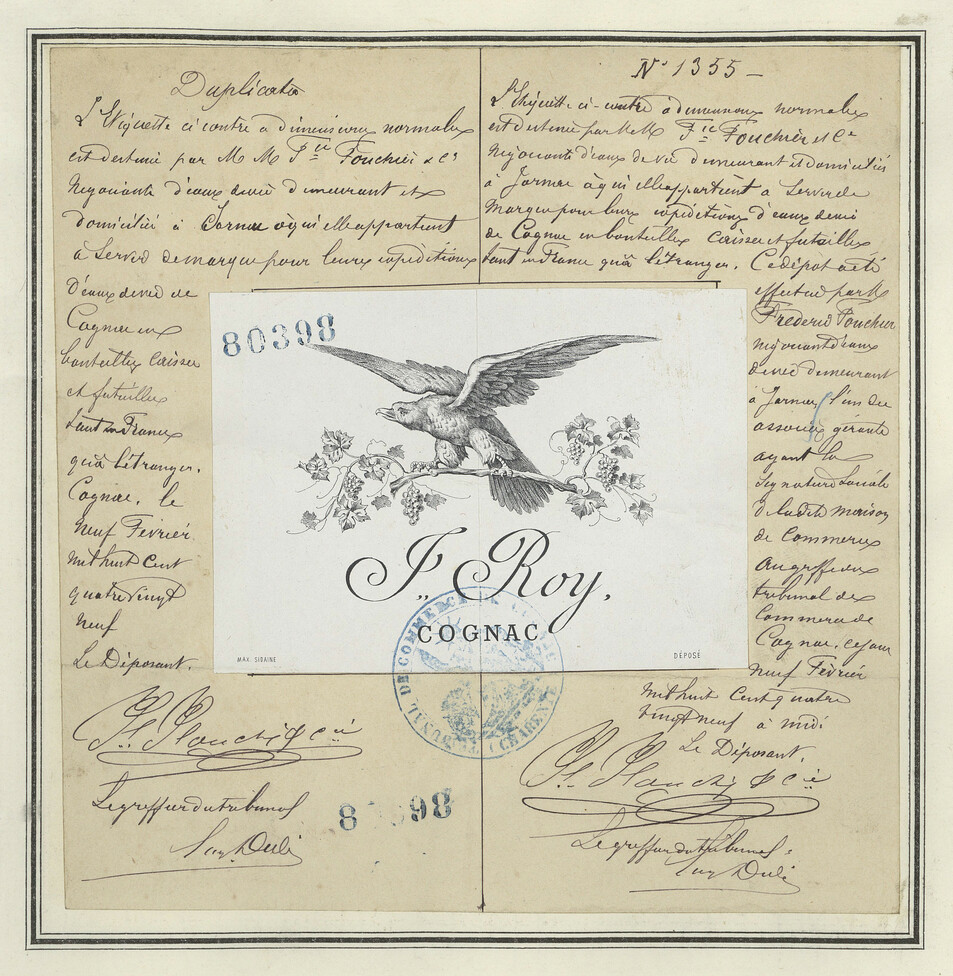 Duplicata
L'Etiquette ci contre a dimensions normales
est destinée par M M Fic Fouchier & Cie
Negociants d'eaux de vie demeurant et
domiciliés à Jarnac à qui elle appartient
à servir de marque pour leurs expeditions
d'eaux de vie de
Cognac en
bouteilles caisses
et futailles
tant en France
qu'à l'étranger.
Cognac, le
Neuf Février
mil huit cent
quatre vingt
neuf
Le Déposant.
Le greffier du tribunal
N° 1355 -
L'Etiquette ci-contre à dimensions normales
est destinée par M M Fic Fouchier et Cie
Negociants d'eaux de vie demeurant et domiciliés
à Jarnac à qui elle appartient a servir de
marque pour leurs expeditions d'eaux de vie
de Cognac en bouteilles caisses et futailles
tant en France qu'à l'étranger. Ce dépot a été
effectué par M
Frederic Fouchier
negociant d'eaux
de vie demeurant
à Jarnac, l'un des
associés gérants
ayant la
signature sociale
de la dite maison
de Commerce
au greffe du
tribunal de
Commerce de
Cognac, ce jour
neuf Février
mil huit cent quatre
vingt neuf à midi
Le Déposant.
Le greffier du tribunal
80398
J. Roy,
COGNAC
MAX. SIRAINE
DÉPOSÉ
TRIBUNAL DE COMMERCE DE COGNAC (CHARENTE)
8 398